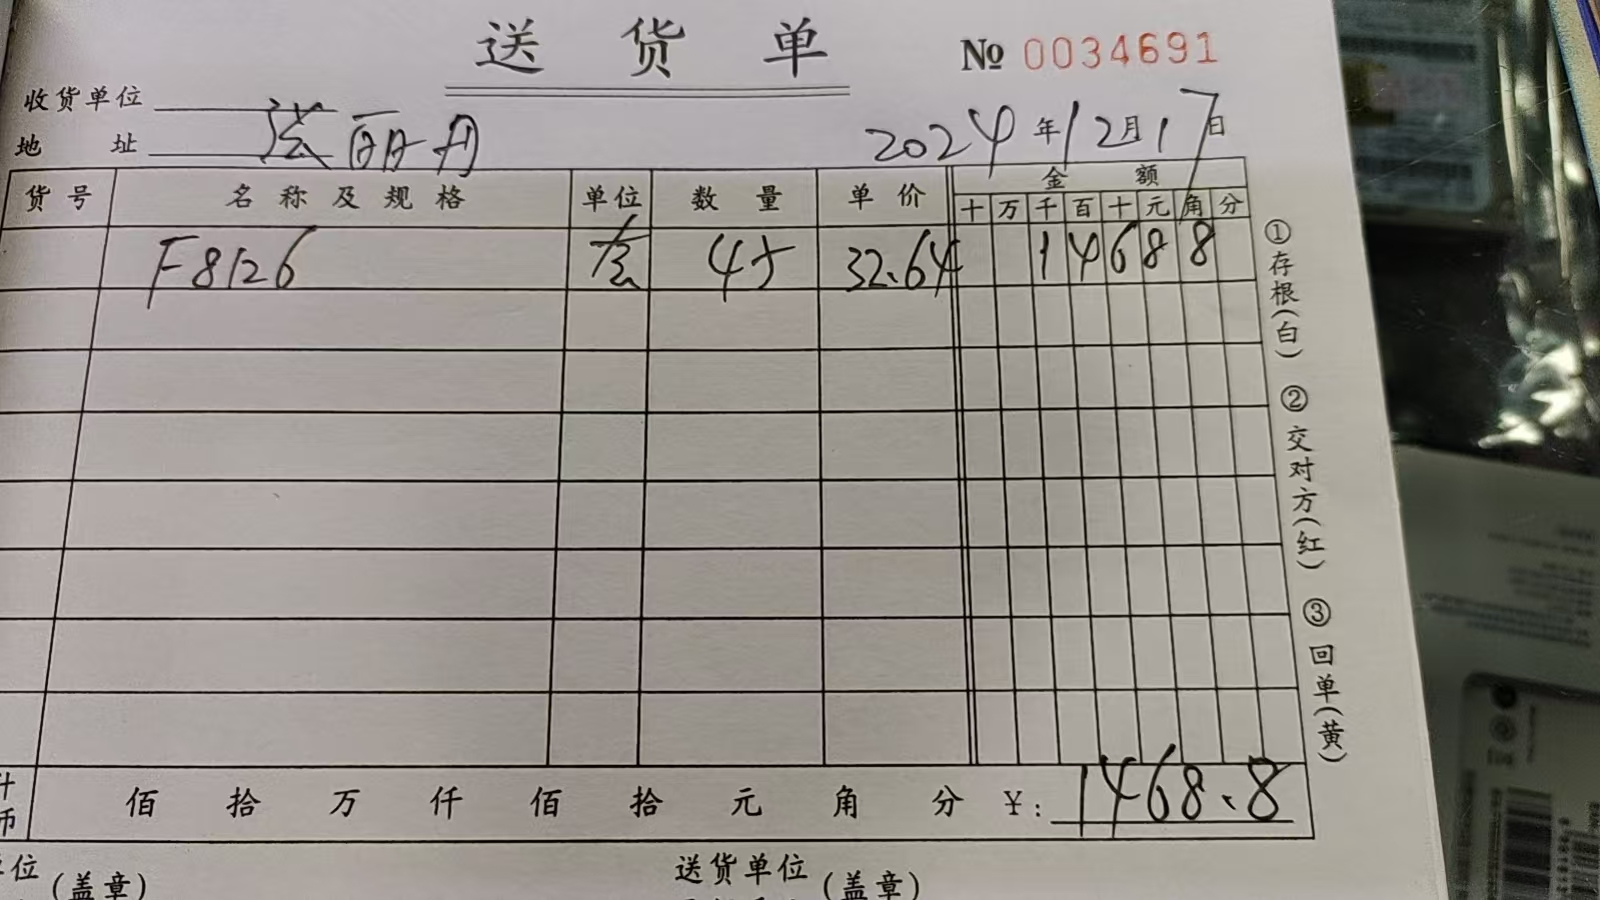 送货单 № 0034691
收货单位
地址 洪丽丹 2024年12月17日
货号 名称及规格 单位 数量 单价 金额
十 万 千 百 十 元 角 分
F8126 套 45 32.64 1 4 6 8 8
①存根(白) ②交对方(红) ③回单(黄)
佰 拾 万 仟 佰 拾 元 角 分 ¥: 1468.8
单位(盖章) 送货单位(盖章)